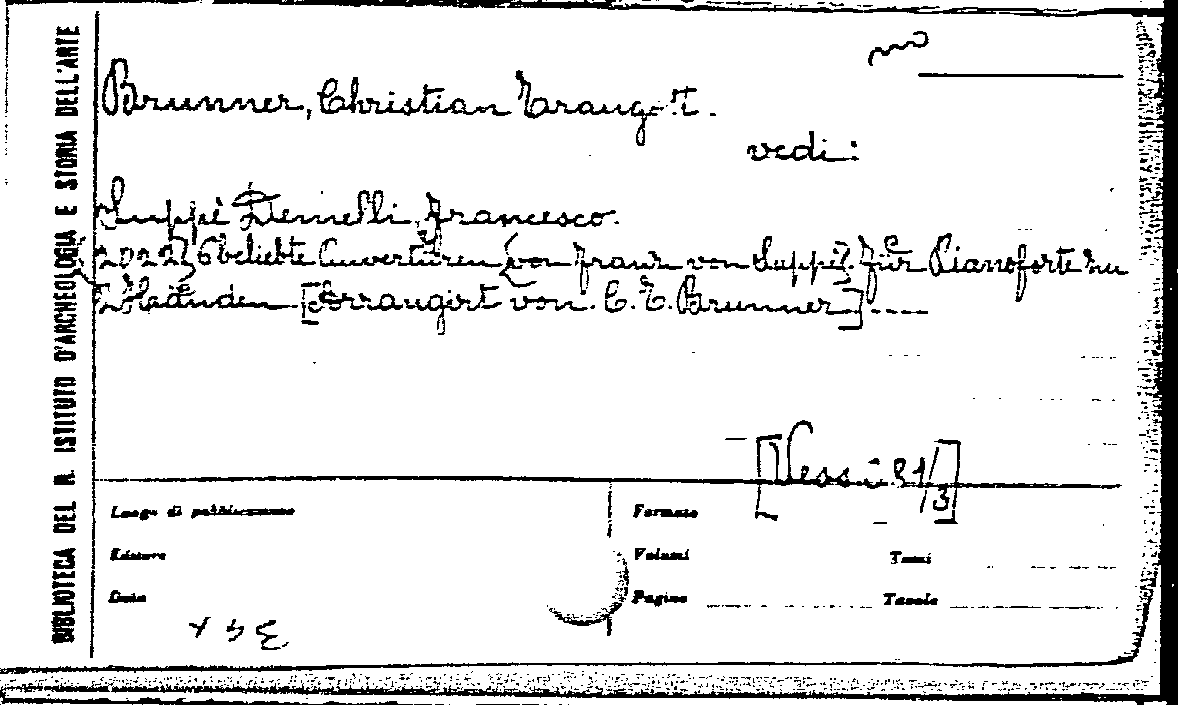 BIBLIOTECA DEL R. ISTITUTO D'ARCHEOLOGIA E STORIA DELL'ARTE
Brunner, Christian Traugott.
vedi:
Suppè Demelli, Francesco.
[2022] 6 beliebte Ouverturen [von Franz von Suppè]. für Pianoforte zu
2 Händen [Arrangirt von. C. T. Brunner] ----
[Vessi 81/3]
Luogo di pubblicazione
Formato
Editore
Volumi
Tomi
Data
Pagine
Tavole